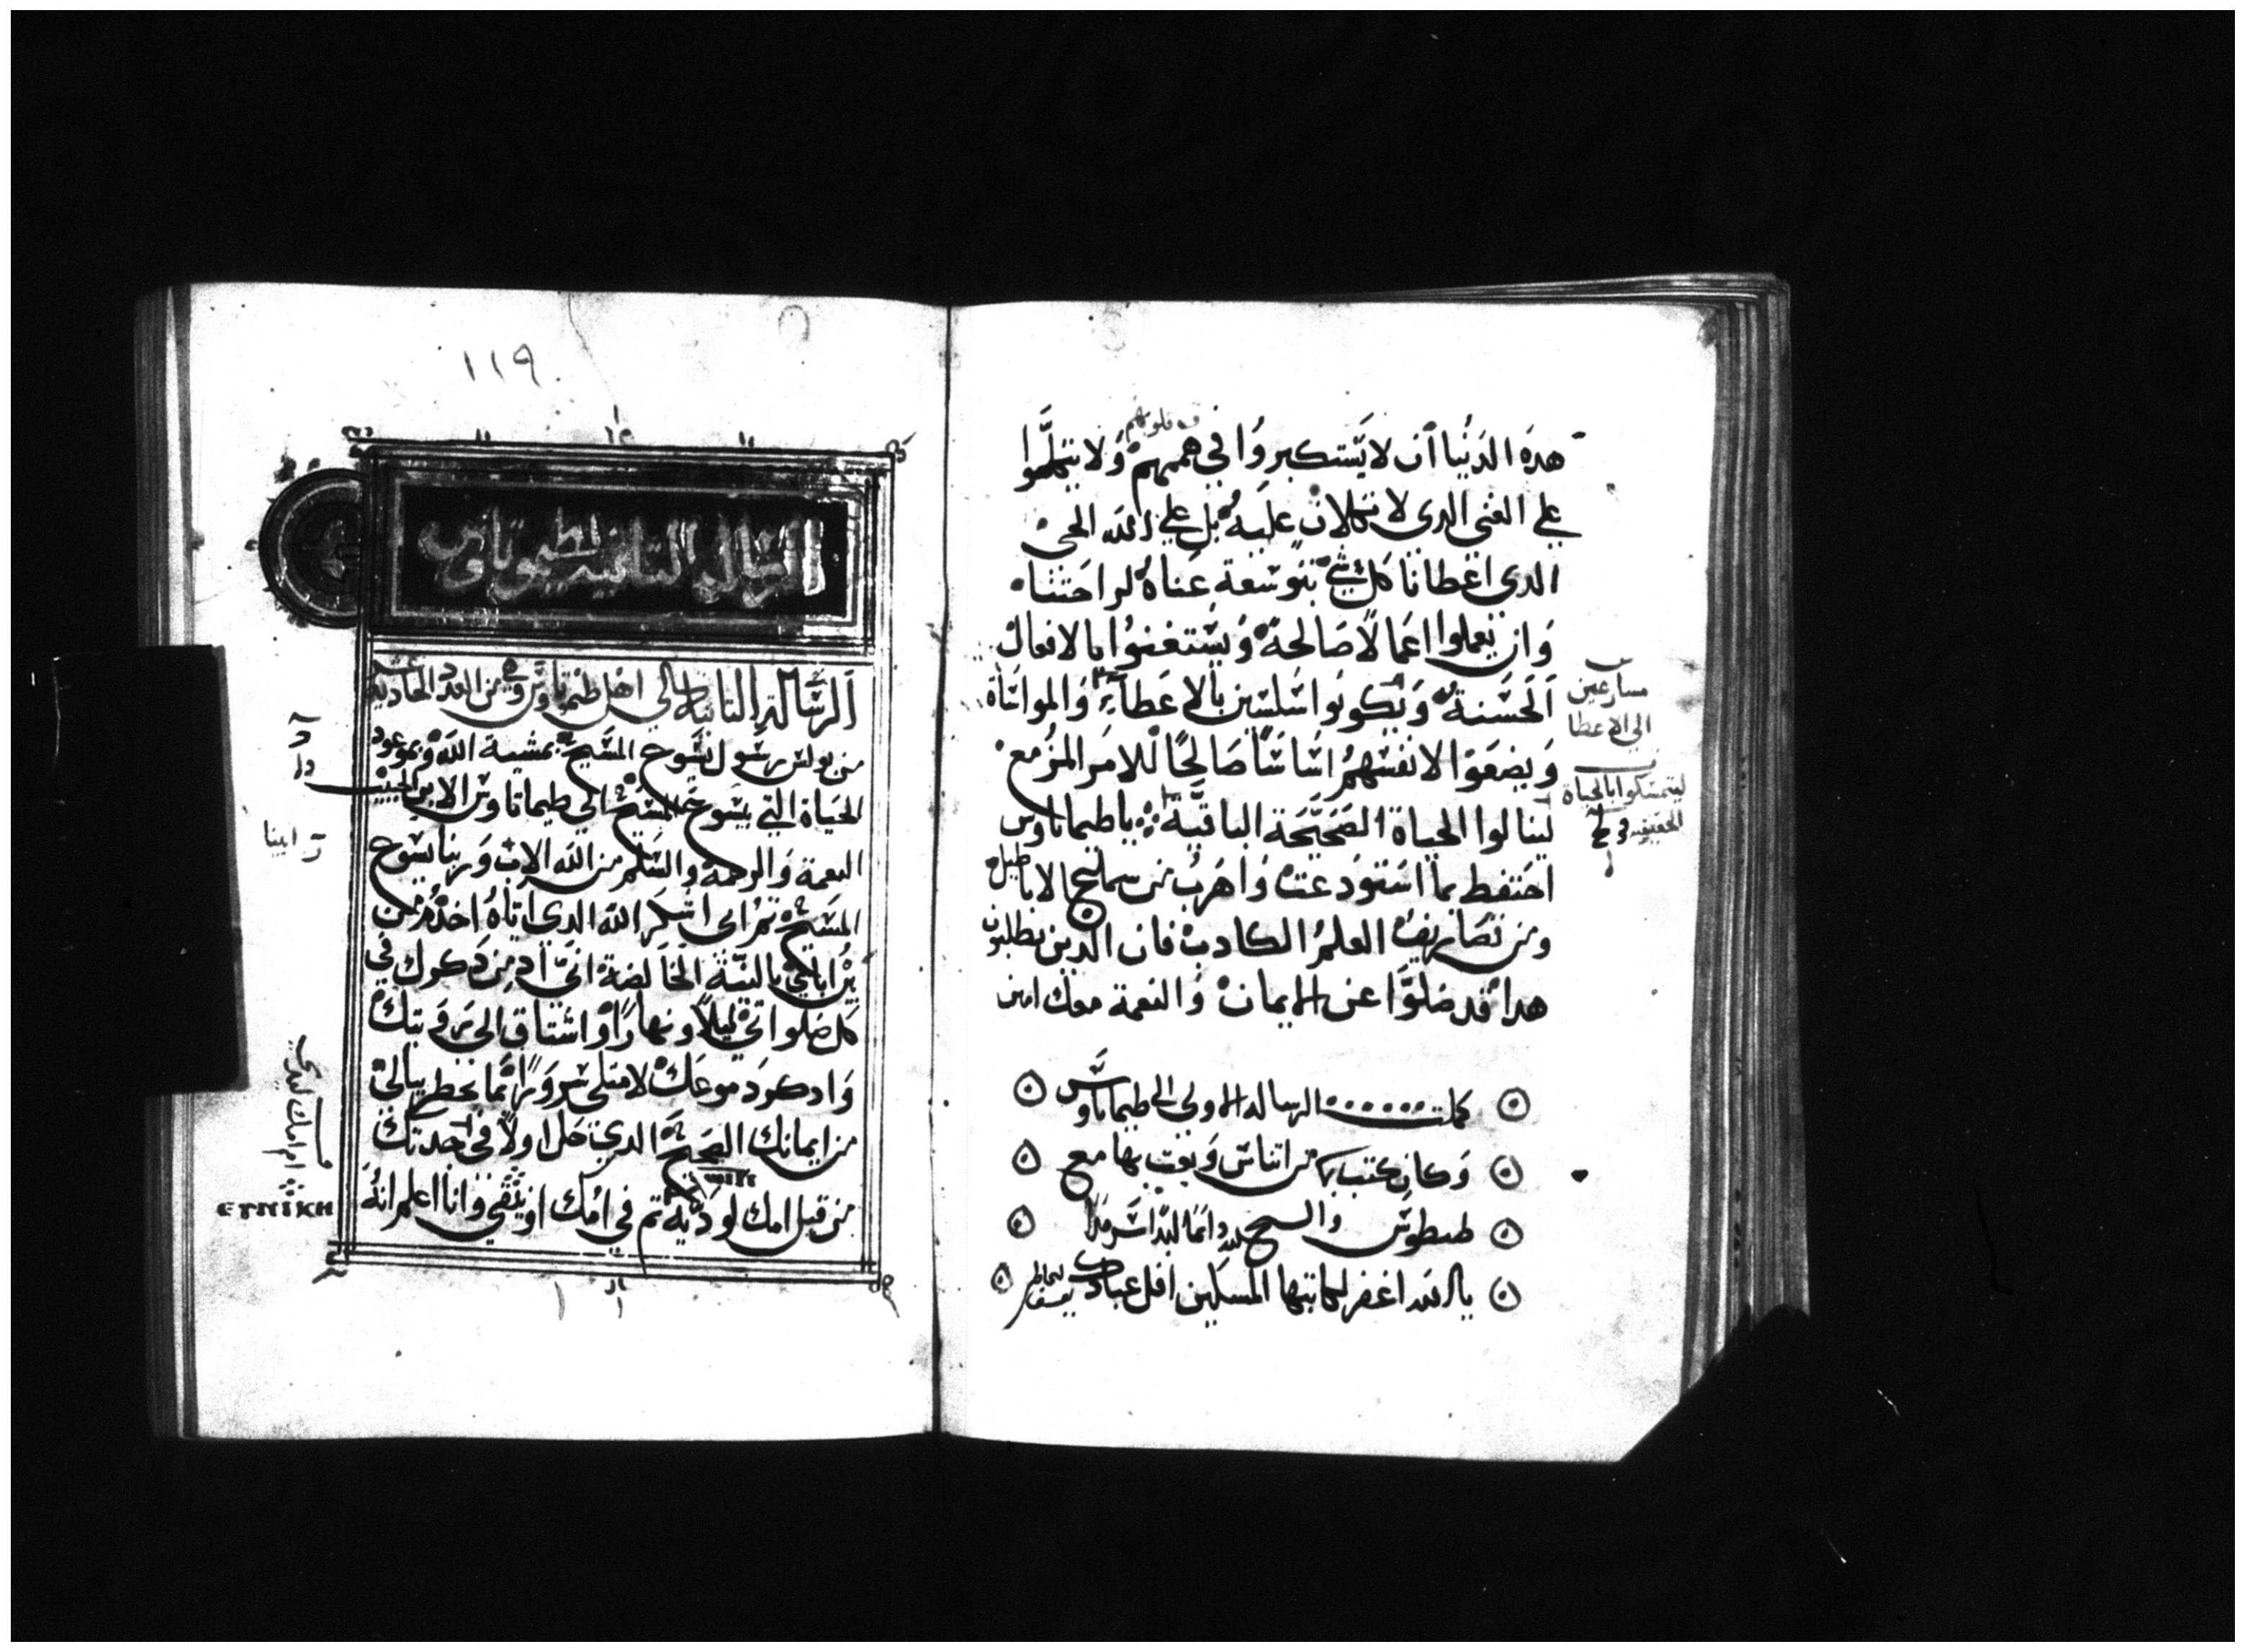 في قلوبهم
هذه الدنيا ان لا يستكبروا في هممهم ولا يتكلموا
علي الغني الدى لا تكلان عليه بل علي الله الحي
الدى اعطانا كل شي بتوسعة عناه لراحتنا
وان يعملوا اعمالا صالحة ويستغنوا بالافعال
الحسنة ويكونوا سلسين بالاعطاء والمواتاة
ويضعوا لانفسهم اساسا صالحا للامر المزمع
لينالوا الحياة الصحيحة الباقية يا طيماتاوس
احتفظ بما استودعت واهرب من سمايج الاباطيل
ومن تصاريف العلم الكادب فان الدين يطلبون
هدا قد ضلوا عن الايمان والنعمة معك امين
مسارعين
الي الاعطا
ليتمسكوا بالحياة
الحقيقيه
كملت الرسالة الاولى الى طيماتاوس
وكان كتب بها من اتناس وبعت بها مع
طيطوس والسبح لله دائما ابدا سرمدا
يا الله اغفر لكاتبها المسكين اقل عبادك
١١٩
الرسالة التانية لطيموتاوس
الرسالة التانية الي اهل طيماتاوس وهي من العدد الحادية عشر
من بولس رسول يسوح المسيح بمشية الله وبموعود
الحياة التي بيسوح المسيح الي طيماتاوس الابن الحبيب
النعمة والرحمة والسلم من الله الاب وربنا يسوح
المسيح تم اني اشكر الله الدى اياه اخدم من
اباي بالنية الخالصة اني ادمن دكرك في
كل صلواتي ليلا ونهارا واشتاق الى رويتك
وادكر دموعك لامتلي سرورا بما يخطر ببالي
من ايمانك الصحيح الدي حل اولا في جدتك
من قبل امك لودية تم في امك اونيقي وانا اعلم انه
ابينا
ΕΥΝΙΚΗ